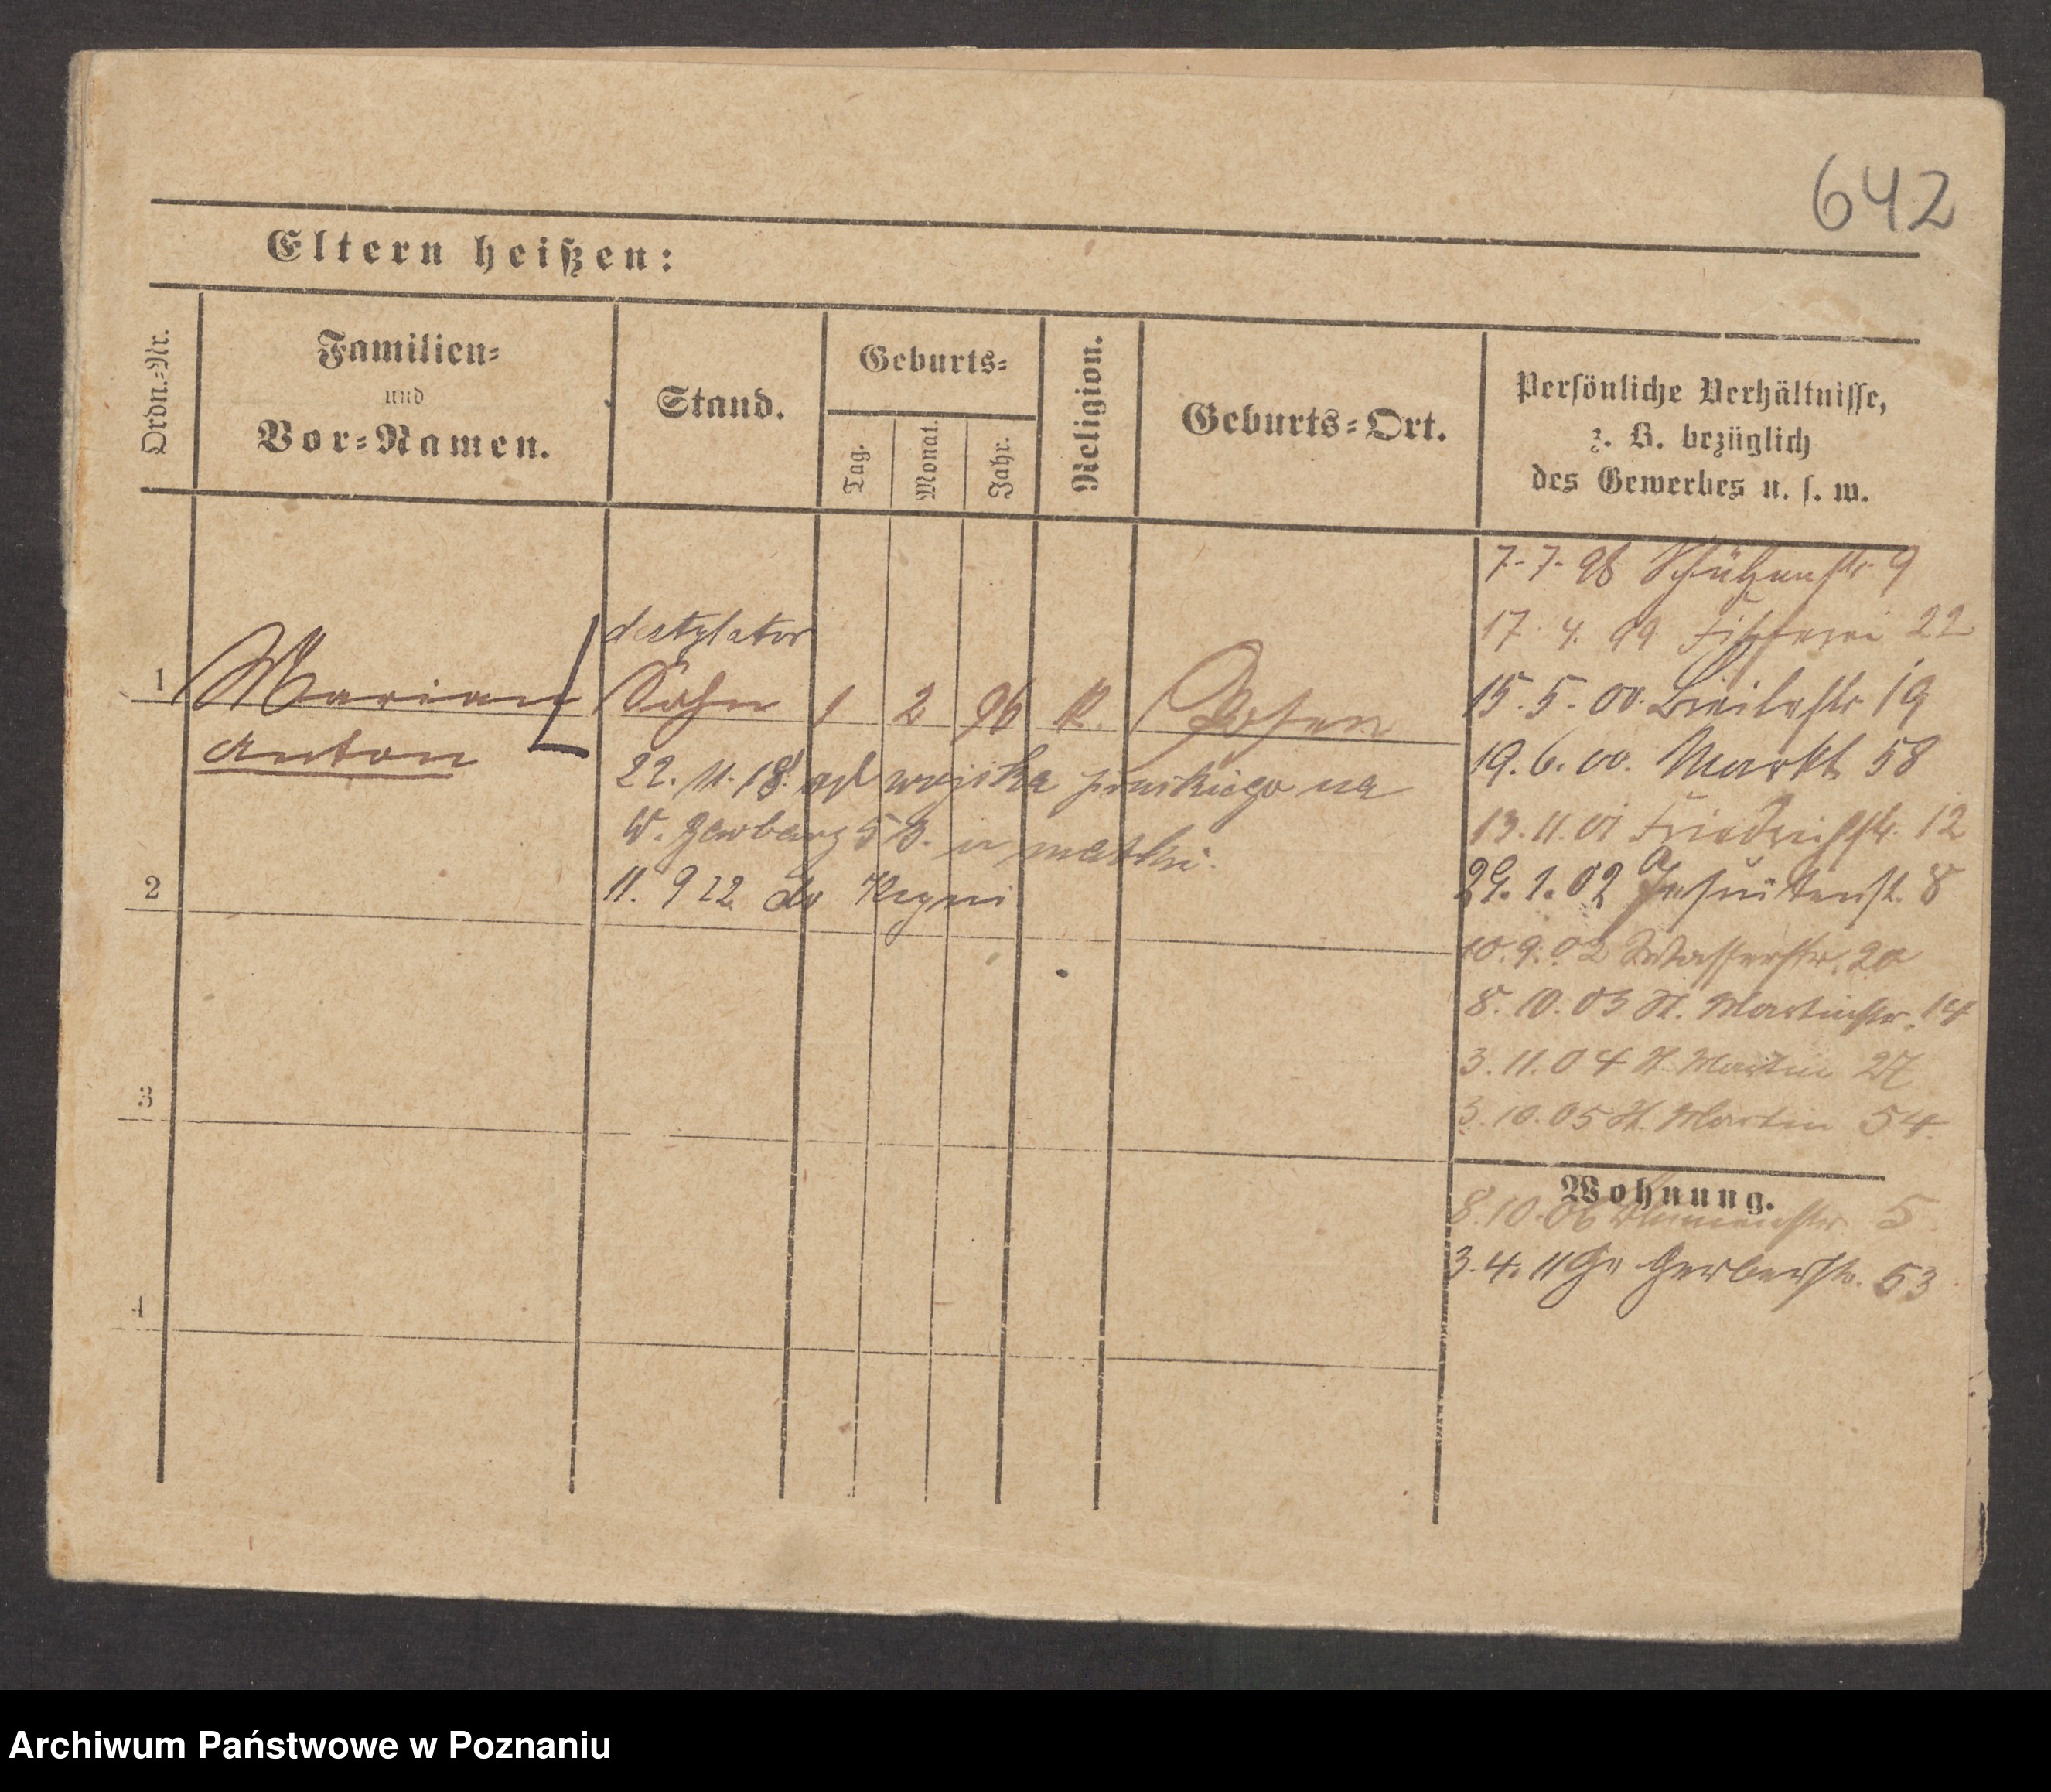 642
Eltern heißen:
Ordn.-Nr.
Familien-
und
Vor-Namen.
Stand.
Geburts-
Tag.
Monat.
Jahr.
Religion.
Geburts-Ort.
Persönliche Verhältnisse,
z. B. bezüglich
des Gewerbes u. s. w.
destylator
1 Marian Sohn 1 2 96 K. Posen
Anton
22. 11. 18. od wojska pruskiego na
W. Garbary 53. u matki.
11. 9 22. do
2
3
4
7.7.98 Schützenstr. 9
17.4.99 Fischerei 22
15.5.00. Breitestr. 19
19.6.00. Markt 58
13.11.01 Friedrichstr. 12
29.1.02 Jesuitenst. 8
10.9.02 Wasserstr. 20
8.10.03 St. Martinstr. 14
3.11.04 St. Martin 27
3.10.05 St. Martin 54.
Wohnung.
8.10.06 5
3.4.11 Gr Gerberstr. 53
Archiwum Państwowe w Poznaniu